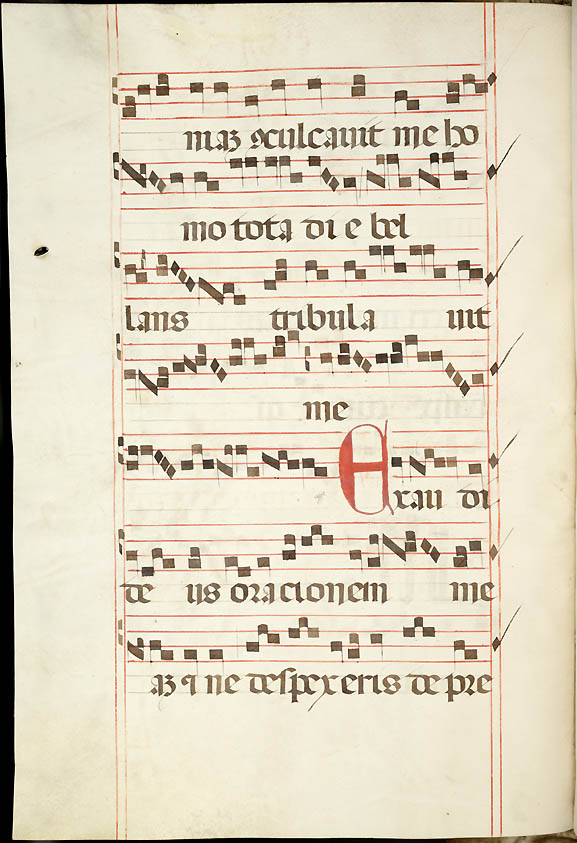 maʒ ꝯculcauit me ho
mo tota di e bel
lans tribula uit
me
Exau di
de us oracionem me
aʒ ⁊ ne despexeris de pre